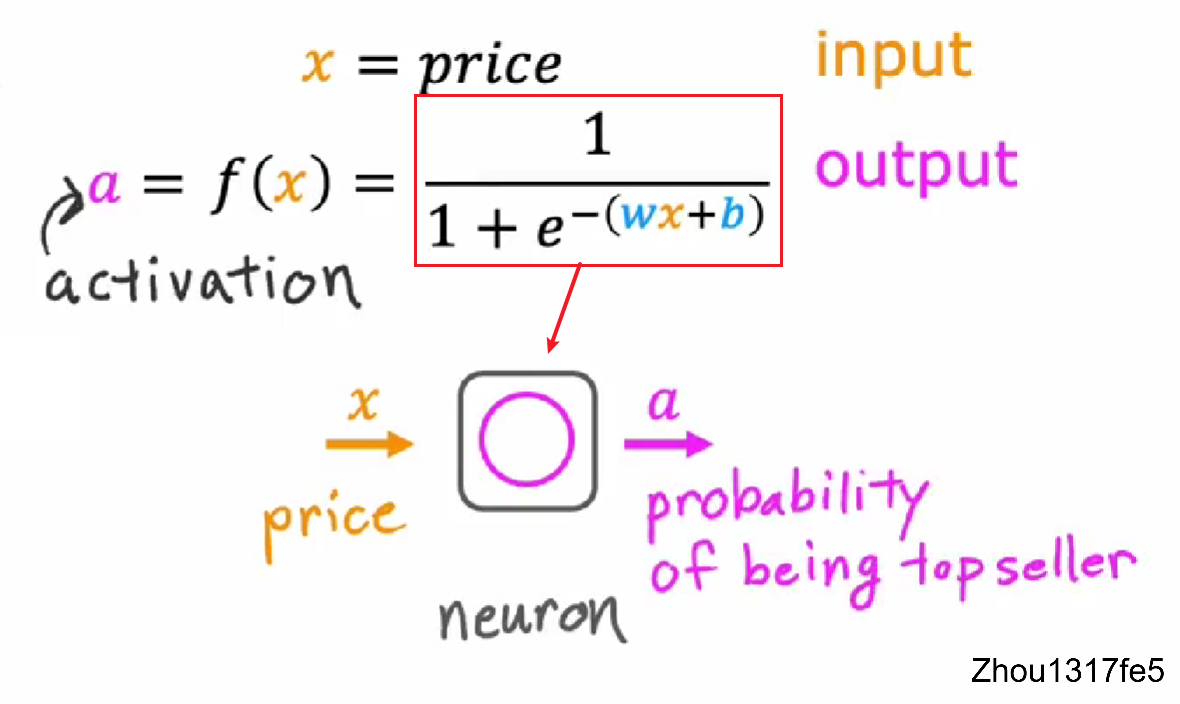 x = price input
a = f(x) = 1 / (1 + e^{-(wx+b)}) output
activation
x a
price
probability
of being top seller
neuron
Zhou1317fe5